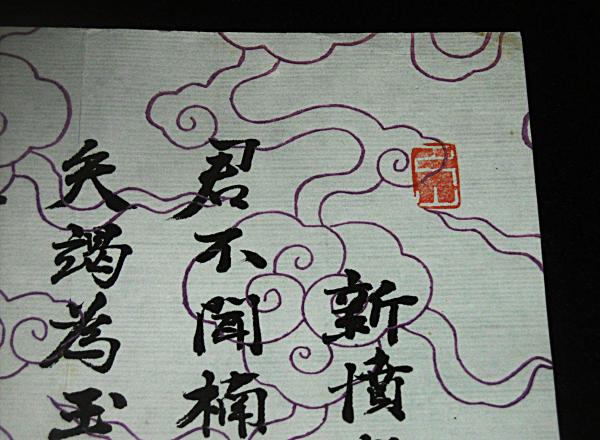 新墳
君不聞楠
矢竭為玉